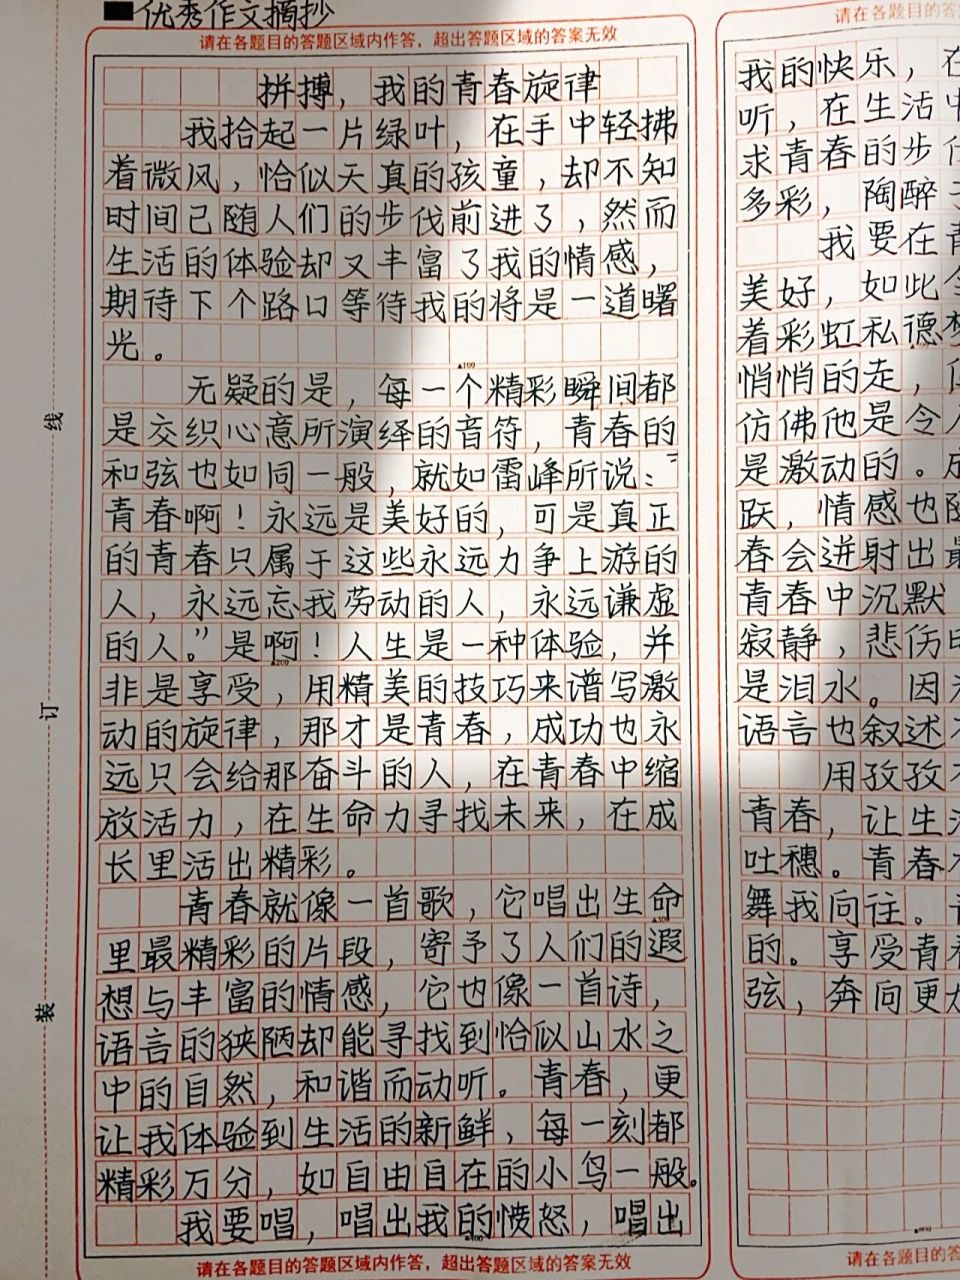 ■优秀作文摘抄
请在各题目的答题区域内作答，超出答题区域的答案无效
拼搏，我的青春旋律
我拾起一片绿叶，在手中轻拂
着微风，恰似天真的孩童，却不知
时间已随人们的步伐前进了，然而
生活的体验却又丰富了我的情感，
期待下个路口等待我的将是一道曙
光。
▲100
无疑的是，每一个精彩瞬间都
是交织心意所演绎的音符，青春的
和弦也如同一般，就如雷峰所说："
青春啊！永远是美好的，可是真正
的青春只属于这些永远力争上游的
人，永远忘我劳动的人，永远谦虚
的人。"是啊！人生是一种体验，并
▲200
非是享受，用精美的技巧来谱写激
动的旋律，那才是青春，成功也永
远只会给那奋斗的人，在青春中缩
放活力，在生命力寻找未来，在成
长里活出精彩。
青春就像一首歌，它唱出生命
▲300
里最精彩的片段，寄予了人们的遐
想与丰富的情感，它也像一首诗，
语言的狭陋却能寻找到恰似山水之
中的自然，和谐而动听。青春，更
让我体验到生活的新鲜，每一刻都
精彩万分，如自由自在的小鸟一般。
我要唱，唱出我的愤怒，唱出
▲400
请在各题目的答题区域内作答，超出答题区域的答案无效
线
订
装
请在各题目的答
我的快乐，在
听，在生活中
求青春的步伐
多彩，陶醉于
我要在青
美好，如此
着彩虹私德梦
悄悄的走，但
仿佛他是令人
是激动的。成
跃，情感也随
春会迸射出最
青春中沉默
寂静，悲伤时
是泪水。因
语言也叙述不
用孜孜不
青春，让生活
吐穗。青春
舞我向往。青
的。享受青春
弦，奔向更
请在各题目的答